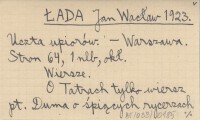 ŁADA Jan Wacław 1923.
Uczta upiorów. – Warszawa.
Stron 64, 1 nlb, okł.
Wiersze.
O Tatrach tylko wiersz
pt. Duma o śpiących rycerzach